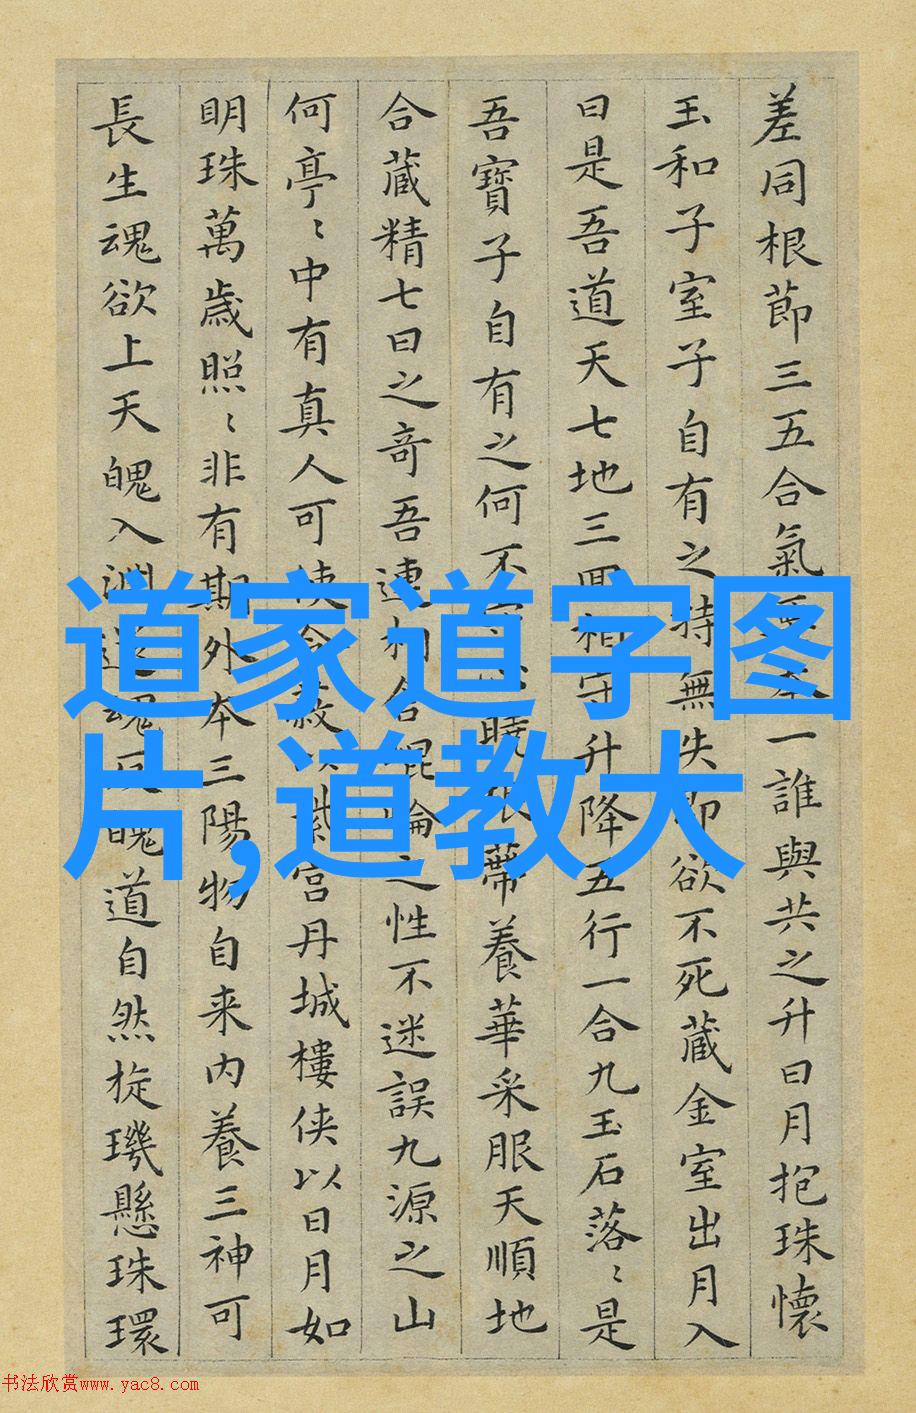 差同根節三五合氣一誰與共之升日月抱珠懷
玉和子室子自有之持無失即欲不死藏金室出月入
曰是吾道天七地三回相守升降五行一合九玉石落〻是
吾寶子自有之何不根蔕養華采服天順地
合藏精七日之奇吾連相合之性不迷誤九源之山
何亭〻中有真人可使令以紫宮丹城樓俠以日月如
明珠萬歳照〻非有期外本三陽物自来内養三神可
長生魂欲上天魄入淵魂魄道自然旋璣懸珠環
道家道字图
片,道教大
书法欣赏www.yac8.com